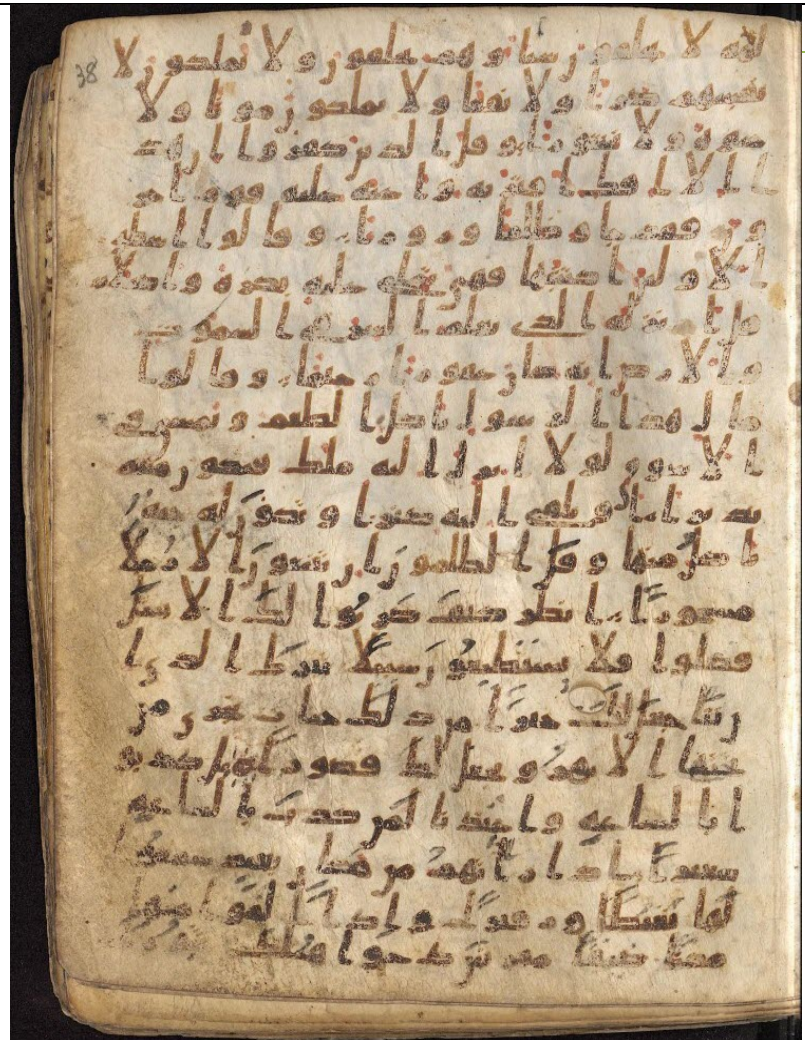 38
لهه لا يخلقون شيا وهم يخلقون ولا يملكون لا
نفسهم ضرا ولا نفعا ولا يملكون موتا ولا
حيوة ولا نشورا وقال الذين كفروا ان هذ
ا الا افك افتريه واعنه عليه قوم اخر
ون فقد جاو ظلما وزورا وقالوا اسطير
الاولين اكتتبها فهي تملى عليه بكرة واصيلا
قل انزله الذي يعلم السر في السموت
والارض انه كان غفورا رحيما وقالوا
مال هذا الرسول ياكل الطعم ويمشي في
الاسوق لولا انزل اليه ملك فيكون معه
نذيرا او يلقى اليه كنز او تكون له جنة
ياكل منها وقال الظلمون ان تتبعون الا رجلا
مسحورا انظر كيف ضربوا لك الامثل
فضلوا فلا يستطيعون سبيلا تبرك الذي ا
ن شا جعل لك خيرا من ذلك جنت تجري من
تحتها الانهر ويجعل لك قصورا بل كذبو
ا بالساعة واعتدنا لمن كذب بالساعة
سعيرا اذا راتهم من مكن بعيد سمعوا
لها تغيظا وزفيرا واذا القوا منها
مكنا ضيقا مقرنين دعوا هنلك